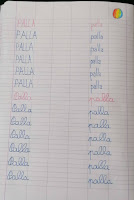 PALLA palla
PALLA palla
PALLA palla
PALLA palla
PALLA palla
PALLA palla
PALLA palla
Palla palla
Palla palla
Palla palla
Palla palla
Palla palla
Palla palla
Palla palla